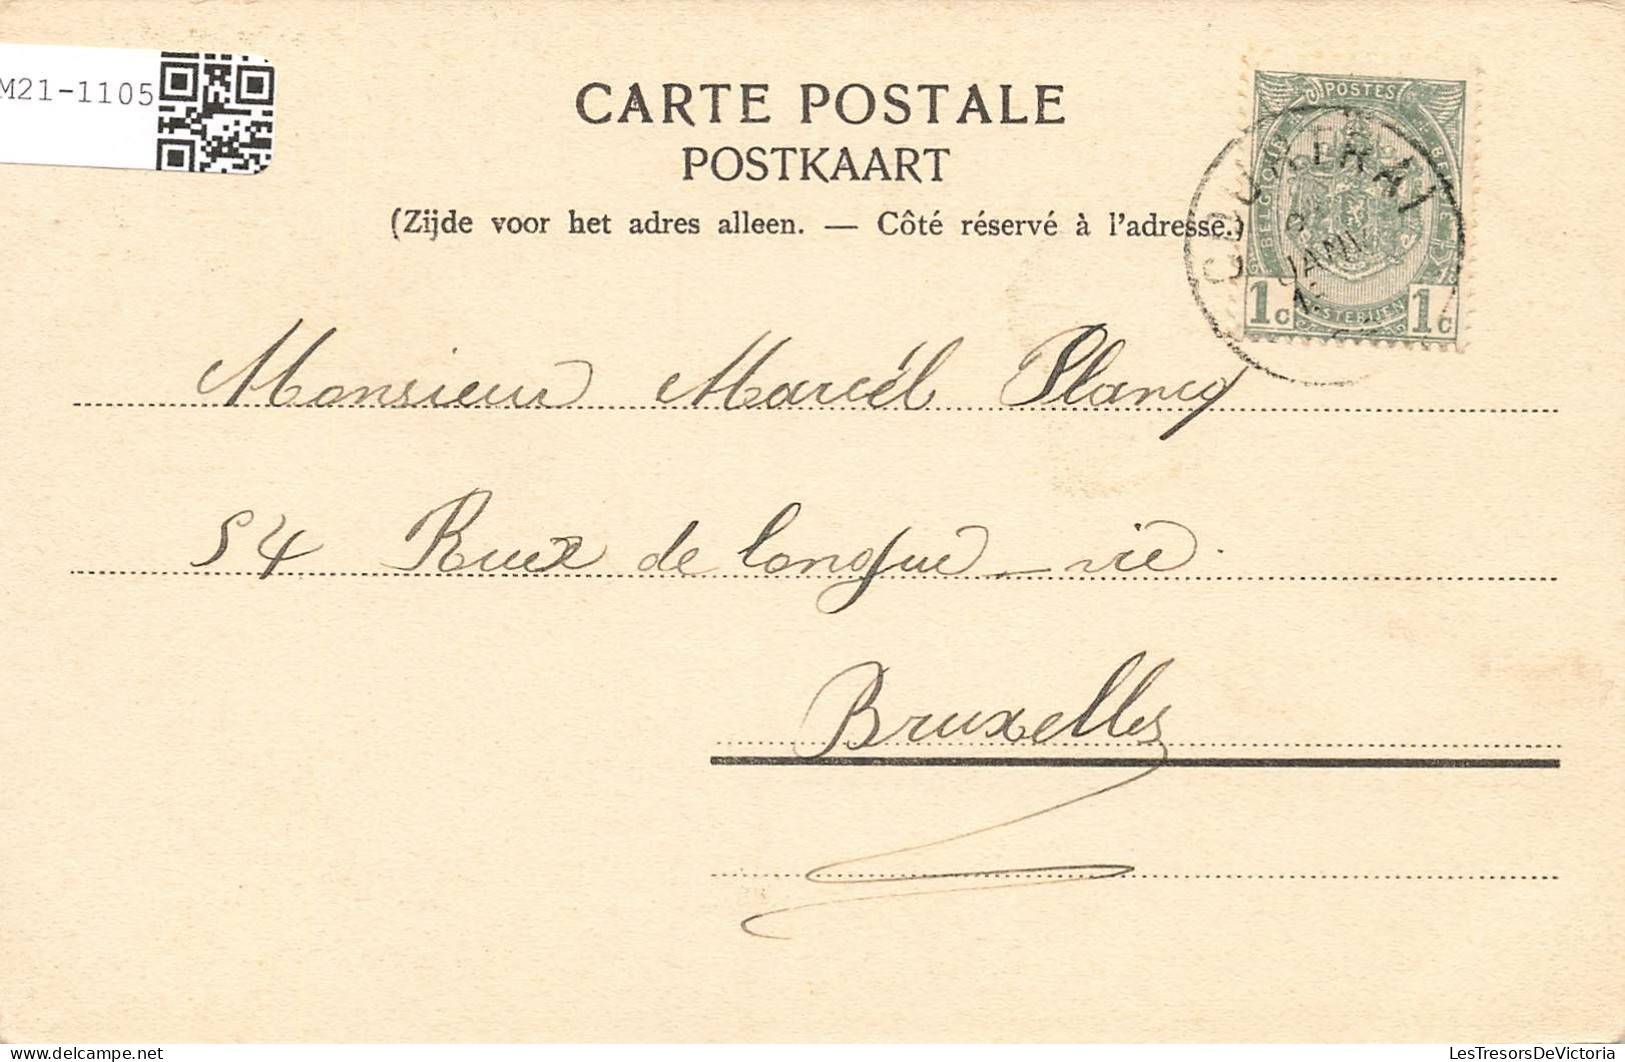 M21-1105
CARTE POSTALE
POSTKAART
(Zijde voor het adres alleen. — Côté réservé à l'adresse.)
POSTES
BELGIQUE
1c 1c
JANV
Monsieur Marcel Plancq
54 Rue de longue-vie
Bruxelles
LesTresorsDeVictoria